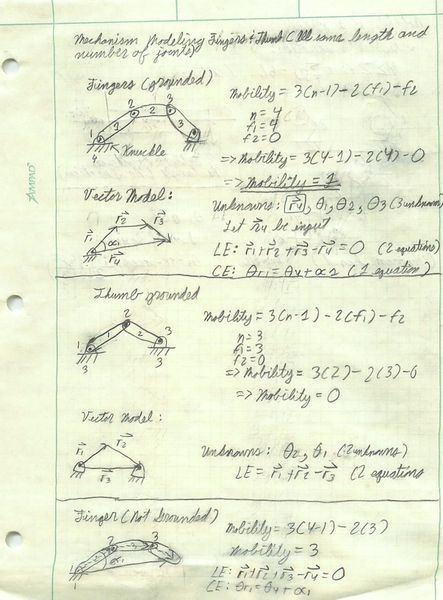 Mechanism Modeling Fingers & Thumb (All same length and
number of joints)
Fingers (grounded)
Mobility = 3(n-1) - 2(f1) - f2
n = 4
f1 = 4
f2 = 0
=> Mobility = 3(4-1) - 2(4) - 0
=> Mobility = 1
1 2 3
1 2 3
4
Knuckle
AMPAD
Vector Model:
r⃗1 r⃗2 r⃗3 r⃗4 α1
Unknowns: r⃗4, θ1, θ2, θ3 (3 unknowns)
Let r⃗4 be input
LE: r⃗1 + r⃗2 + r⃗3 - r⃗4 = 0 (2 equations)
CE: θr1 = θ4 + α1 (1 equation)
Thumb grounded
Mobility = 3(n-1) - 2(f1) - f2
n = 3
f1 = 3
f2 = 0
=> Mobility = 3(2) - 2(3) - 0
=> Mobility = 0
1 2 3
1 2
3 3
Vector Model:
r⃗1 r⃗2 r⃗3
Unknowns: θ2, θ1 (2 unknowns)
LE = r⃗1 + r⃗2 - r⃗3 (2 equations
Finger (Not Grounded)
Mobility = 3(4-1) - 2(3)
Mobility = 3
1 2 3
α1
LE: r⃗1 + r⃗2 + r⃗3 - r⃗4 = 0
CE: θr1 = θ4 + α1